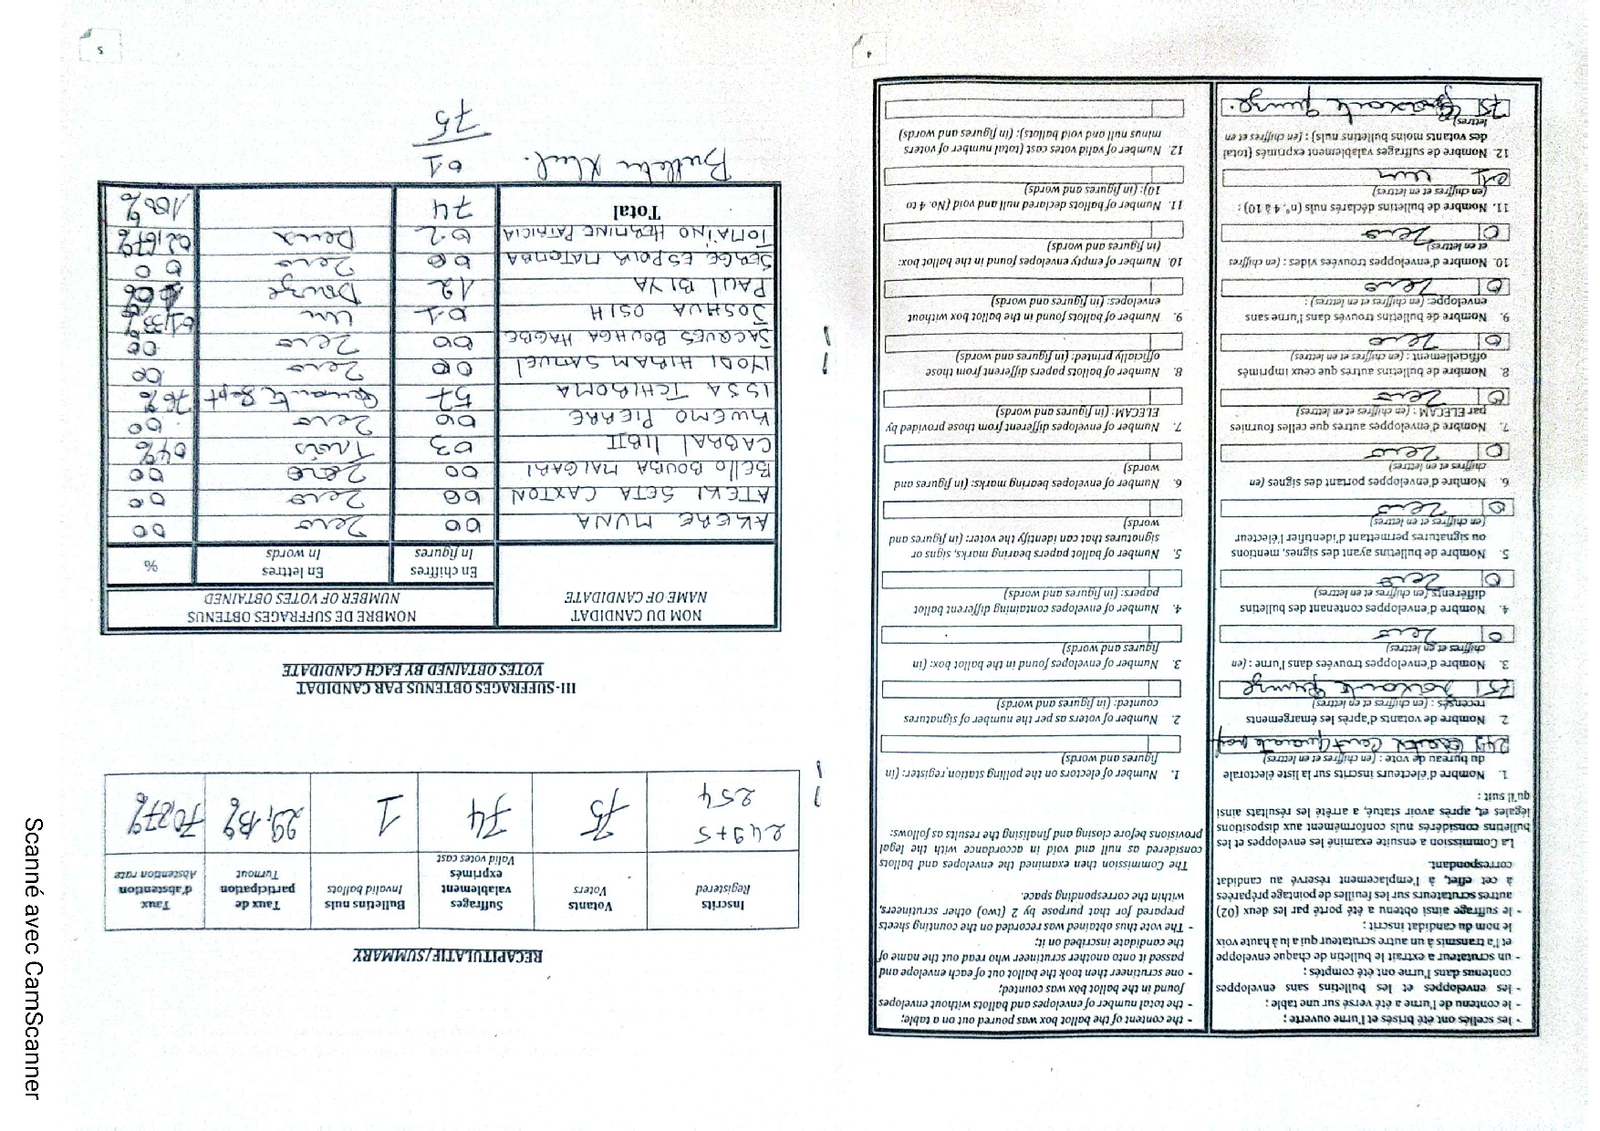 4
- les scellés ont été brisés et l'urne ouverte ;
- le contenu de l'urne a été versé sur une table ;
- les enveloppes et les bulletins sans enveloppes
contenus dans l'urne ont été comptés ;
- un scrutateur a extrait le bulletin de chaque enveloppe
et l'a transmis à un autre scrutateur qui a lu à haute voix
le nom du candidat inscrit ;
- le suffrage ainsi obtenu a été porté par les deux (02)
autres scrutateurs sur les feuilles de pointage préparées
à cet effet, à l'emplacement réservé au candidat
correspondant.
La Commission a ensuite examiné les enveloppes et les
bulletins considérés nuls conformément aux dispositions
légales et, après avoir statué, a arrêté les résultats ainsi
qu'il suit :
1. Nombre d'électeurs inscrits sur la liste électorale
du bureau de vote : (en chiffres et en lettres)
249
2. Nombre de votants d'après les émargements
recensés : (en chiffres et en lettres)
75 Soixante Quinze
3. Nombre d'enveloppes trouvées dans l'urne : (en
chiffres et en lettres)
0 Zero
4. Nombre d'enveloppes contenant des bulletins
différents (en chiffres et en lettres)
0 Zero
5. Nombre de bulletins ayant des signes, mentions
ou signatures permettant d'identifier l'électeur
(en chiffres et en lettres)
0 Zero
6. Nombre d'enveloppes portant des signes (en
chiffres et en lettres)
0 Zero
7. Nombre d'enveloppes autres que celles fournies
par ELECAM : (en chiffres et en lettres)
0 Zero
8. Nombre de bulletins autres que ceux imprimés
officiellement : (en chiffres et en lettres)
0 Zero
9. Nombre de bulletins trouvés dans l'urne sans
enveloppe: (en chiffres et en lettres) :
0 Zero
10. Nombre d'enveloppes trouvées vides : (en chiffres
et en lettres)
0 Zero
11. Nombre de bulletins déclarés nuls (n°. 4 à 10) :
(en chiffres et en lettres)
01 un
12. Nombre de suffrages valablement exprimés (total
des votants moins bulletins nuls) : (en chiffres et en
lettres)
75 Soixante Quinze.
- the content of the ballot box was poured out on a table;
- the total number of envelopes and ballots without envelopes
found in the ballot box was counted;
- one scrutineer then took the ballot out of each envelope and
passed it onto another scrutineer who read out the name of
the candidate inscribed on it;
- The vote thus obtained was recorded on the counting sheets
prepared for that purpose by 2 (two) other scrutineers,
within the corresponding space.
The Commission then examined the envelopes and ballots
considered as null and void in accordance with the legal
provisions before closing and finalising the results as follows:
1. Number of electors on the polling station register: (in
figures and words)
2. Number of voters as per the number of signatures
counted: (in figures and words)
3. Number of envelopes found in the ballot box: (in
figures and words)
4. Number of envelopes containing different ballot
papers: (in figures and words)
5. Number of ballot papers bearing marks, signs or
signatures that can identify the voter: (in figures and
words)
6. Number of envelopes bearing marks: (in figures and
words)
7. Number of envelopes different from those provided by
ELECAM: (in figures and words)
8. Number of ballots papers different from those
officially printed: (in figures and words)
9. Number of ballots found in the ballot box without
envelopes: (in figures and words)
10. Number of empty envelopes found in the ballot box:
(in figures and words)
11. Number of ballots declared null and void (No. 4 to
10): (in figures and words)
12. Number of valid votes cast (total number of voters
minus null and void ballots): (in figures and words)
5
RECAPITULATIF/SUMMARY
Inscrits Registered
Votants Voters
Suffrages valablement exprimés Valid votes cast
Bulletins nuls Invalid ballots
Taux de participation Turnout
Taux d'abstention Abstention rate
249+5 254 75 74 1 29,13% 70,87%
III-SUFFRAGES OBTENUS PAR CANDIDAT
VOTES OBTAINED BY EACH CANDIDATE
NOM DU CANDIDAT
NAME OF CANDIDATE
NOMBRE DE SUFFRAGES OBTENUS
NUMBER OF VOTES OBTAINED
En chiffres In figures
En lettres In words
%
AKERE MUNA 00 Zero 00
ATEKI SETA CAXTON 00 Zero 00
BELLO BOUBA MAIGARI 00 Zero 00
CABRAL LIBII 03 Trois 04%
KWEMO PIERRE 00 Zero 00
ISSA TCHIROMA 57 Sept 76%
IYODI HIRAM SAMUEL 00 Zero 00
JACQUES BOUHGA HAGBE 00 Zero 00
JOSHUA OSIH 01 un 01,33%
PAUL BIYA 12 Douze
SERGE ESPOIR MATOMBA 00 Zero 00
TOMAÏNO HERMINE PATRICIA 02 Deux 02,67%
Total 74 100%
Bulletin Nul. 01
75
Scanné avec CamScanner